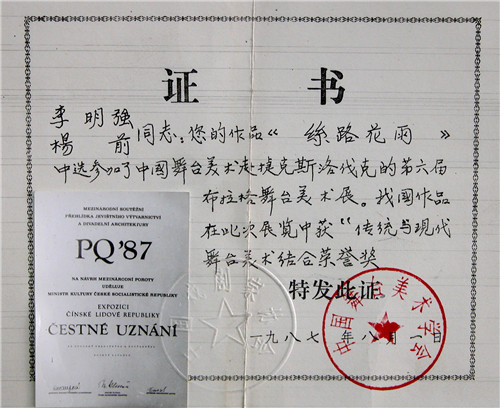 证 书
李明强
杨前 同志：您的作品《絲路花雨》
中选参加了中國舞台美术赴捷克斯洛伐克的第六届
布拉格舞台美术展。我國作品
在此次展览中获“传统与现代
舞台美术结合荣誉奖
特发此证
一九八七年八月一日
中国舞台美术学会
MEZINÁRODNÍ SOUTĚŽNÍ
PŘEHLÍDKA JEVIŠTNÍHO VÝTVARNICTVÍ
A DIVADELNÍ ARCHITEKTURY
PQ'87
NA NÁVRH MEZINÁRODNÍ POROTY
UDĚLUJE
MINISTR KULTURY ČESKÉ SOCIALISTICKÉ REPUBLIKY
EXPOZICI
ČÍNSKÉ LIDOVÉ REPUBLIKY
ČESTNÉ UZNÁNÍ